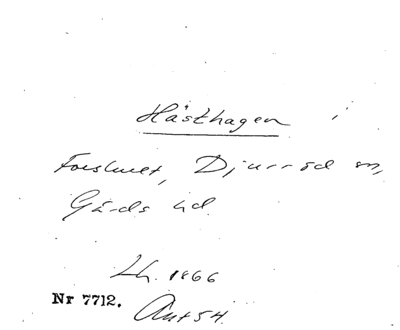 Hästhagen
Forslunet, Djurröd sn,
Gärds hd.
Lh. 1866
Nr 7712.
Ant 54.